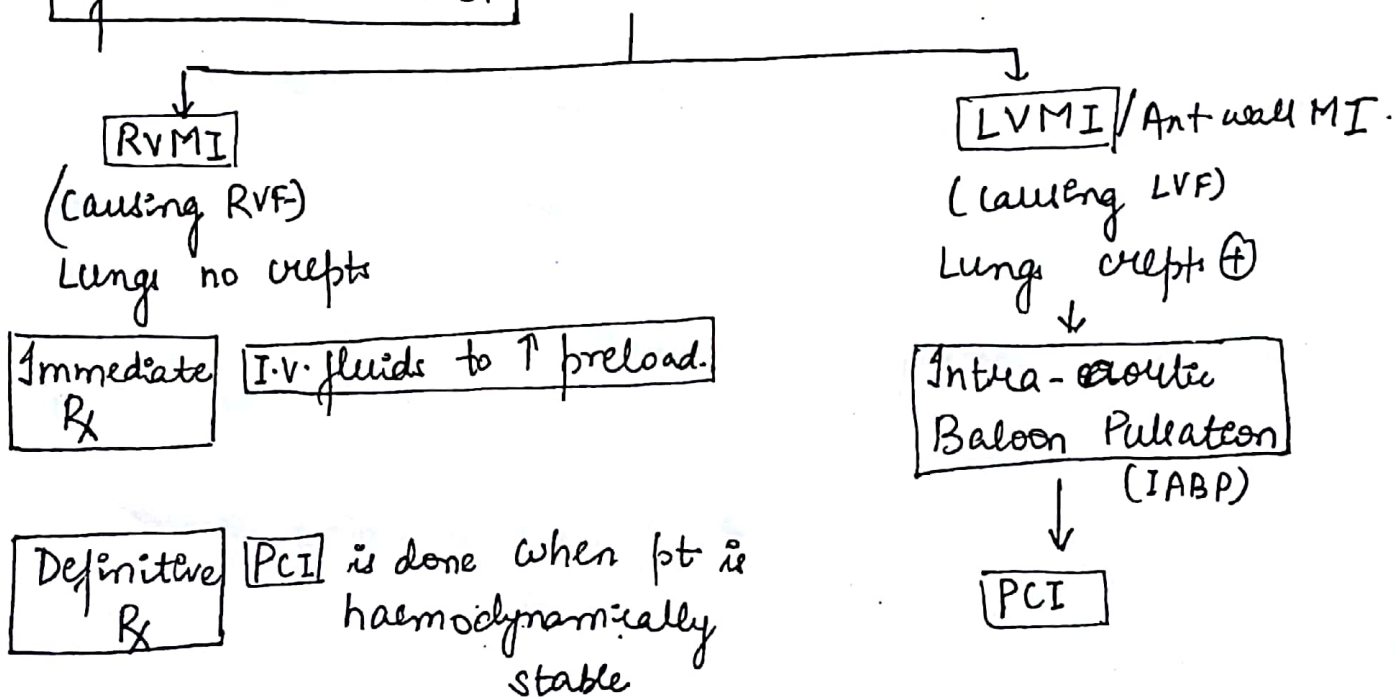 RVMI
(Causing RVF)
Lungs no crepts
Immediate
Rx
I.V. fluids to ↑ preload.
Definitive
Rx
PCI is done when pt is
haemodynamically
stable
LVMI / Ant wall MI.
(causing LVF)
Lungs crepts ⊕
Intra-aortic
Baloon Pulsation
(IABP)
PCI